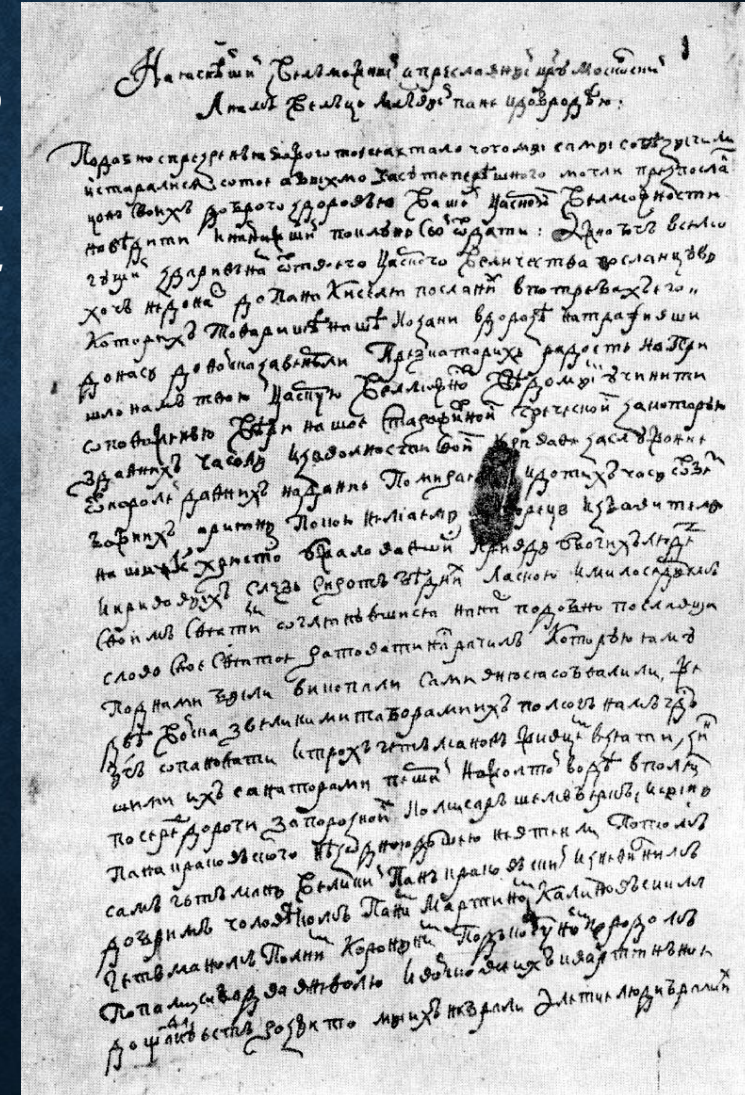 Наяснѣший Велможний и преславний цару Московский
А намъ Велце млстивый пане и добродѣю:
Подобно с презренья Божого тое ся стало чого ми сами собѣ зичили
и старалися о тое абихмо часу теперешного могли през посланцовъ
своихъ доброго здоровья Вашей Царской Велможности
навѣдити и найнижший поклонъ свой отдати: Ажно Богъ всемо
гущий здарилъ намъ от твоего Царского Величества посланцовъ
хочъ не до насъ до Пана Киселя посланихъ в потребахъ его,,
Которихъ Товариши наши Козаки в дорозѣ натрафивши
до насъ до войска завернули Презъ которихъ радостно При
шло намъ твою Царскую Велможность Вѣдомим учинити
оповоженью Вѣри нашое Старожитной Греческой за которую
Здавнихъ часовъ и за волности свои криваве заслужоние
От королей давнихъ надание Помираемъ и до тихъ часъ от без
божнихъ ариянъ Покою не маемъ Творецъ избавитель
нашъ Ис Христосъ ужаловавшися кривдъ убогихъ людей
и кривавихъ слезъ Сиротъ бѣднихъ Ласкою и милосердиемъ
Своимъ Святимъ оглянувшися на насъ подобно пославши
слово Свое Святое ратовати насъ рачилъ Которую яму
Под нами били викопали Сами в ню ся обвалили, же
двѣ Войска з великими таборами ихъ помогъ намъ Гсдь
Бгъ опановати и трохъ гетмановъ живцемъ взяти з ин
шими ихъ санаторами перший на Жолтой водѣ в полю
посеред дороги Запорозкой Комисаръ Шемберкъ и синъ
Пана краковского нѣ з одною душею не втекли Потомъ
самъ гетманъ Великий Панъ краковский из невиннимъ
добримъ чоловѣкомъ Паномъ Мартиномъ Калиновскимъ
Гетманомъ Полнимъ Короннимъ Подъ Корсуномъ городомъ
Попали обадва в неволю и войско все ихъ квартянное
до щадку естъ розбито ми ихъ не брали Але тие люди брали ихъ